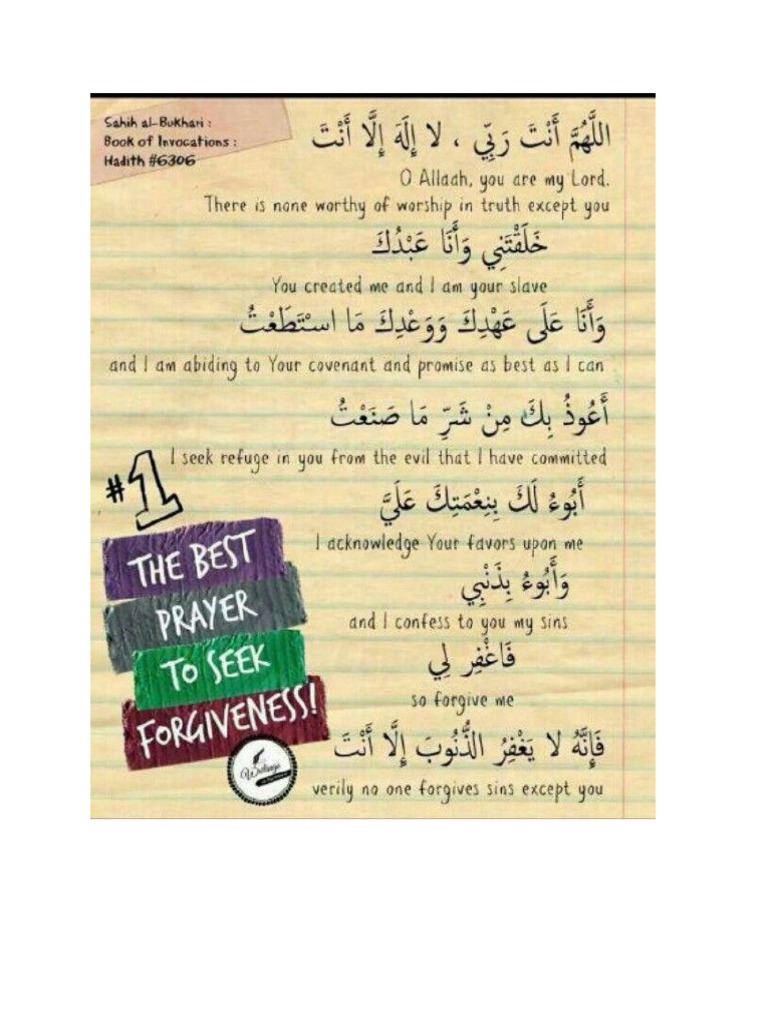 Sahih al-Bukhari :
Book of Invocations :
Hadith #6306
اللَّهُمَّ أَنْتَ رَبِّي ، لا إِلَهَ إِلَّا أَنْتَ
O Allaah, you are my Lord.
There is none worthy of worship in truth except you
خَلَقْتَنِي وَأَنَا عَبْدُكَ
You created me and I am your slave
وَأَنَا عَلَى عَهْدِكَ وَوَعْدِكَ مَا اسْتَطَعْتُ
and I am abiding to Your covenant and promise as best as I can
أَعُوذُ بِكَ مِنْ شَرِّ مَا صَنَعْتُ
I seek refuge in you from the evil that I have committed
أَبُوءُ لَكَ بِنِعْمَتِكَ عَلَيَّ
I acknowledge Your favors upon me
وَأَبُوءُ بِذَنْبِي
and I confess to you my sins
فَاغْفِر لِي
so forgive me
فَإِنَّهُ لا يَغْفِرُ الذُّنُوبَ إِلَّا أَنْتَ
verily no one forgives sins except you
#1
THE BEST
PRAYER
TO SEEK
FORGIVENESS!
Writings